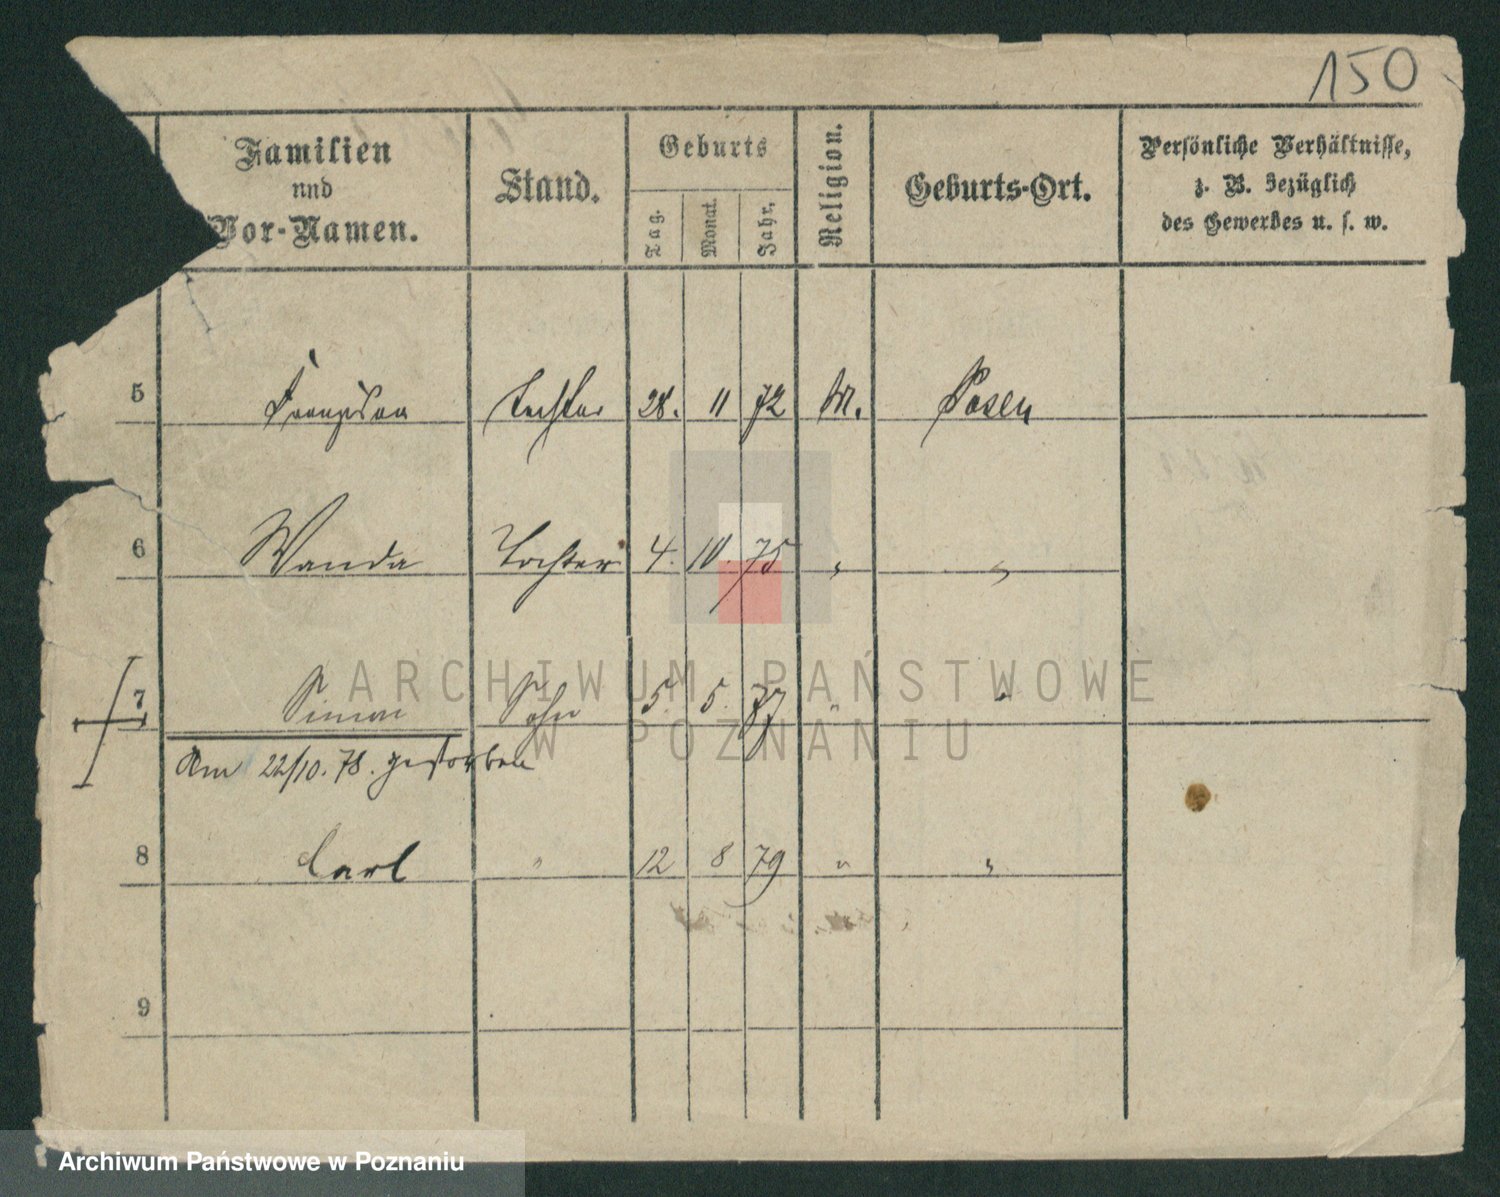 150
Familien
und
Vor-Namen.
Stand.
Geburts
Tag.
Monat.
Jahr.
Religion.
Geburts-Ort.
Persönliche Verhältnisse,
z. B. bezüglich
des Gewerbes u. s. w.
5 Franziska Tochter 28. 11 72 M. Posen
6 Wanda Tochter 4. 10. 75 " "
7 Simon Sohn 5. 5. 77 " "
Am 22/10. 78. gestorben
8 Carl " 12 8 79 " "
9
ARCHIWUM PAŃSTWOWE
W POZNANIU
Archiwum Państwowe w Poznaniu